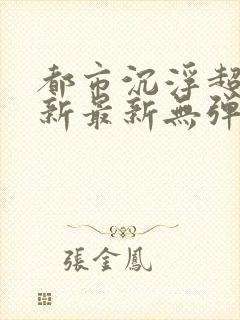 都市沉浮超
新最新無弹
張金鳳